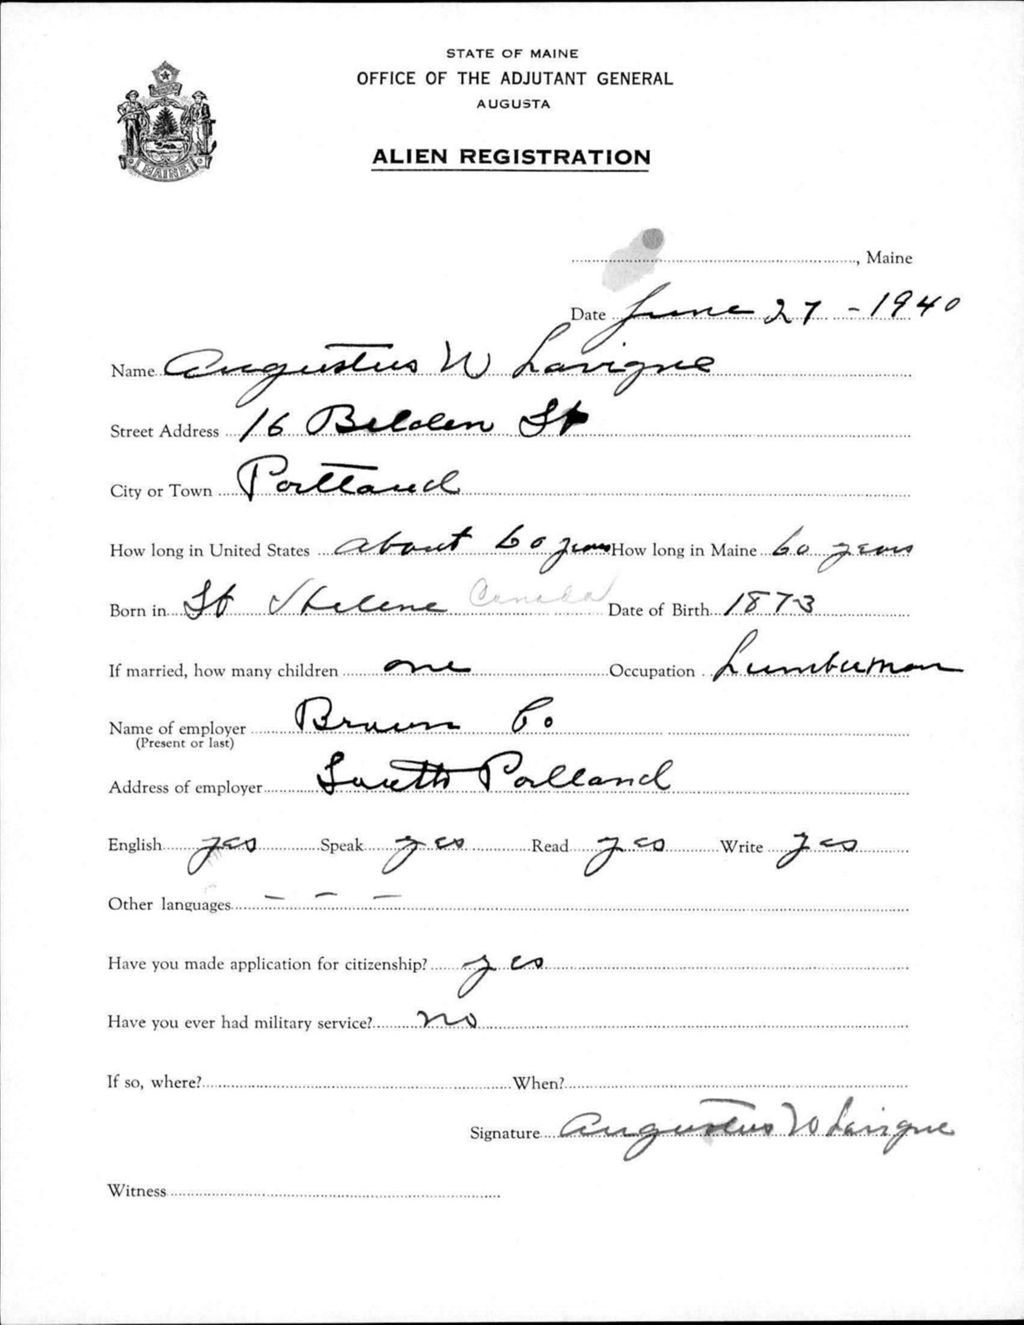 STATE OF MAINE
OFFICE OF THE ADJUTANT GENERAL
AUGUSTA
ALIEN REGISTRATION
MAINE
, Maine
Date June 27 - 1940
Name Augustus W Lavigne
Street Address 16 Belden St
City or Town Portland
How long in United States about 60 years How long in Maine 60 years
Born in St Helene Canada Date of Birth 1873
If married, how many children one Occupation Lumberman
Name of employer Brown Co
(Present or last)
Address of employer South Portland
English yes Speak yes Read yes Write yes
Other languages - - -
Have you made application for citizenship? yes
Have you ever had military service? no
If so, where? When?
Signature Augustus W Lavigne
Witness